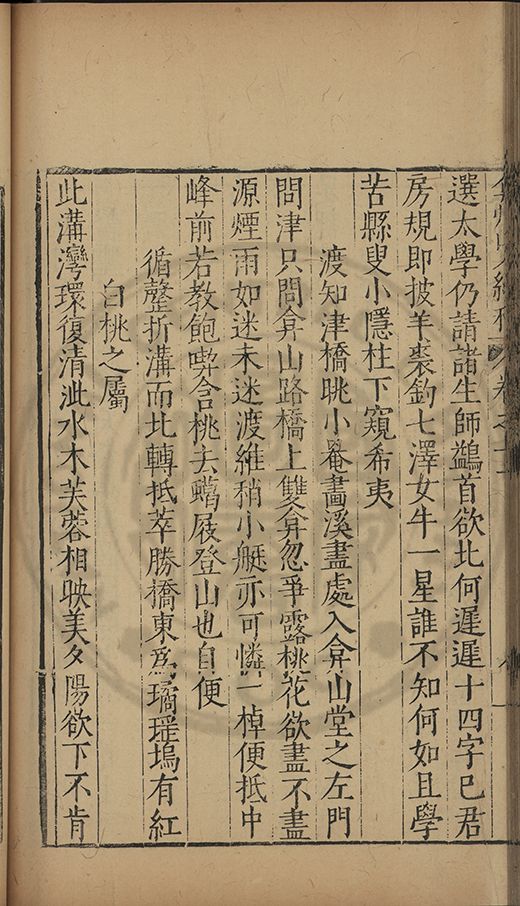 選太學仍請諸生師鷁首欲北何遲遲十四字已君
房規即披羊裘釣七澤女牛一星誰不知何如且學
苦縣叟小隱柱下窺希夷
渡知津橋眺小罨畫溪盡處入弇山堂之左門
問津只問弇山路橋上雙弇忽爭露桃花欲盡不盡
源煙雨如迷未迷渡維稍小艇亦可憐一棹便抵中
峰前若教飽喫含桃去蠟屐登山也自便
循磬折溝而北轉抵萃勝橋東為璚瑤塢有紅
白桃之屬
此溝灣環復清泚水木芙蓉相映美夕陽欲下不肯